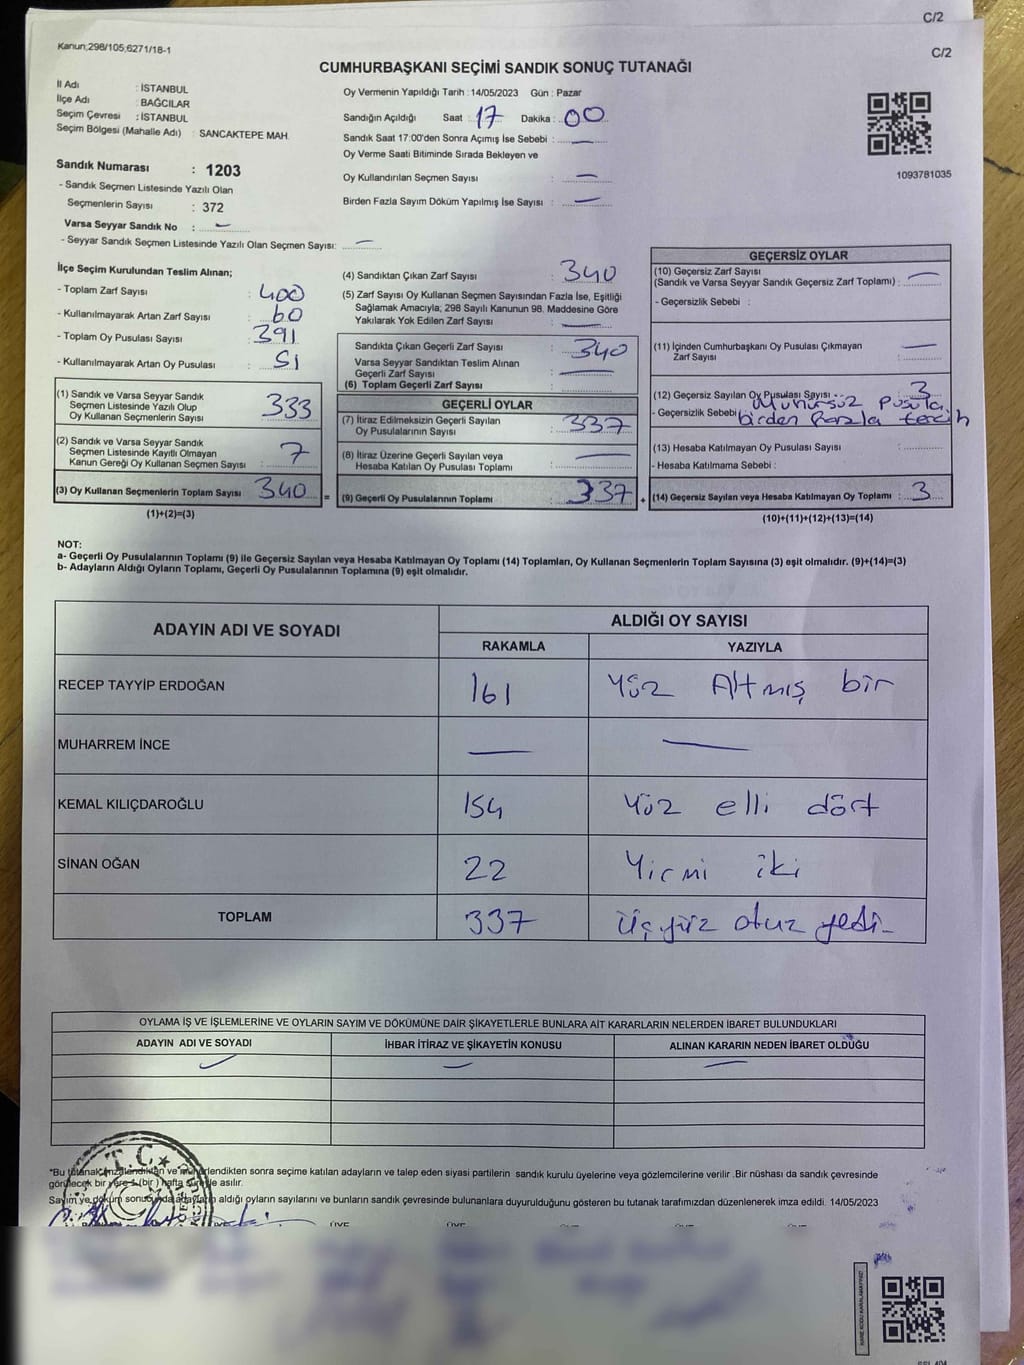 C/2
Kanun;298/105;6271/18-1
C/2
CUMHURBAŞKANI SEÇİMİ SANDIK SONUÇ TUTANAĞI
İl Adı : İSTANBUL
İlçe Adı : BAĞCILAR
Seçim Çevresi : İSTANBUL
Seçim Bölgesi (Mahalle Adı) : SANCAKTEPE MAH.
Sandık Numarası : 1203
- Sandık Seçmen Listesinde Yazılı Olan
Seçmenlerin Sayısı : 372
Varsa Seyyar Sandık No : —
- Seyyar Sandık Seçmen Listesinde Yazılı Olan Seçmen Sayısı: —
Oy Vermenin Yapıldığı Tarih : 14/05/2023 Gün : Pazar
Sandığın Açıldığı Saat : 17 Dakika : 00
Sandık Saat 17:00'den Sonra Açımış İse Sebebi : —
Oy Verme Saati Bitiminde Sırada Bekleyen ve
Oy Kullandırılan Seçmen Sayısı : —
Birden Fazla Sayım Döküm Yapılmış İse Sayısı : —
1093781035
İlçe Seçim Kurulundan Teslim Alınan;
- Toplam Zarf Sayısı : 400
- Kullanılmayarak Artan Zarf Sayısı : 60
- Toplam Oy Pusulası Sayısı : 391
- Kullanılmayarak Artan Oy Pusulası : 51
(1) Sandık ve Varsa Seyyar Sandık
Seçmen Listesinde Yazılı Olup
Oy Kullanan Seçmenlerin Sayısı : 333
(2) Sandık ve Varsa Seyyar Sandık
Seçmen Listesinde Kayıtlı Olmayan
Kanun Gereği Oy Kullanan Seçmen Sayısı : 7
(3) Oy Kullanan Seçmenlerin Toplam Sayısı : 340
(1)+(2)=(3)
(4) Sandıktan Çıkan Zarf Sayısı : 340
(5) Zarf Sayısı Oy Kullanan Seçmen Sayısından Fazla İse, Eşitliği
Sağlamak Amacıyla; 298 Sayılı Kanunun 98. Maddesine Göre
Yakılarak Yok Edilen Zarf Sayısı : —
Sandıkta Çıkan Geçerli Zarf Sayısı : 340
Varsa Seyyar Sandıktan Teslim Alınan
Geçerli Zarf Sayısı : —
(6) Toplam Geçerli Zarf Sayısı :
GEÇERLİ OYLAR
(7) İtiraz Edilmeksizin Geçerli Sayılan
Oy Pusulalarının Sayısı : 337
(8) İtiraz Üzerine Geçerli Sayılan veya
Hesaba Katılan Oy Pusulası Toplamı : —
= (9) Geçerli Oy Pusulalarının Toplamı : 337 +
GEÇERSİZ OYLAR
(10) Geçersiz Zarf Sayısı
(Sandık ve Varsa Seyyar Sandık Geçersiz Zarf Toplamı) : —
- Geçersizlik Sebebi :
(11) İçinden Cumhurbaşkanı Oy Pusulası Çıkmayan
Zarf Sayısı : —
(12) Geçersiz Sayılan Oy Pusulası Sayısı : 3
- Geçersizlik Sebebi : Mühürsüz pusula,
birden fazla tercih
(13) Hesaba Katılmayan Oy Pusulası Sayısı :
- Hesaba Katılmama Sebebi :
(14) Geçersiz Sayılan veya Hesaba Katılmayan Oy Toplamı : 3
(10)+(11)+(12)+(13)=(14)
NOT:
a- Geçerli Oy Pusulalarının Toplamı (9) ile Geçersiz Sayılan veya Hesaba Katılmayan Oy Toplamı (14) Toplamları, Oy Kullanan Seçmenlerin Toplam Sayısına (3) eşit olmalıdır. (9)+(14)=(3)
b- Adayların Aldığı Oyların Toplamı, Geçerli Oy Pusulalarının Toplamına (9) eşit olmalıdır.
ADAYIN ADI VE SOYADI ALDIĞI OY SAYISI
RAKAMLA YAZIYLA
RECEP TAYYİP ERDOĞAN 161 Yüz Altmış bir
MUHARREM İNCE — —
KEMAL KILIÇDAROĞLU 154 Yüz elli dört
SİNAN OĞAN 22 Yirmi iki
TOPLAM 337 Üçyüz otuz yedi
OYLAMA İŞ VE İŞLEMLERİNE VE OYLARIN SAYIM VE DÖKÜMÜNE DAİR ŞİKAYETLERLE BUNLARA AİT KARARLARIN NELERDEN İBARET BULUNDUKLARI
ADAYIN ADI VE SOYADI İHBAR İTİRAZ VE ŞİKAYETİN KONUSU ALINAN KARARIN NEDEN İBARET OLDUĞU
— — —
T.C.
"Bu tutanak imzalandıktan ve mühürlendikten sonra seçime katılan adayların ve talep eden siyasi partilerin sandık kurulu üyelerine veya gözlemcilerine verilir .Bir nüshası da sandık çevresinde
görülecek bir yere 1 (bir) hafta süreyle asılır.
Sayım ve döküm sonucunda adayların aldığı oyların sayılarını ve bunların sandık çevresinde bulunanlara duyurulduğunu gösteren bu tutanak tarafımızdan düzenlenerek imza edildi. 14/05/2023
ÜYE ÜYE
KARE KODU KARALAMAYINIZ!